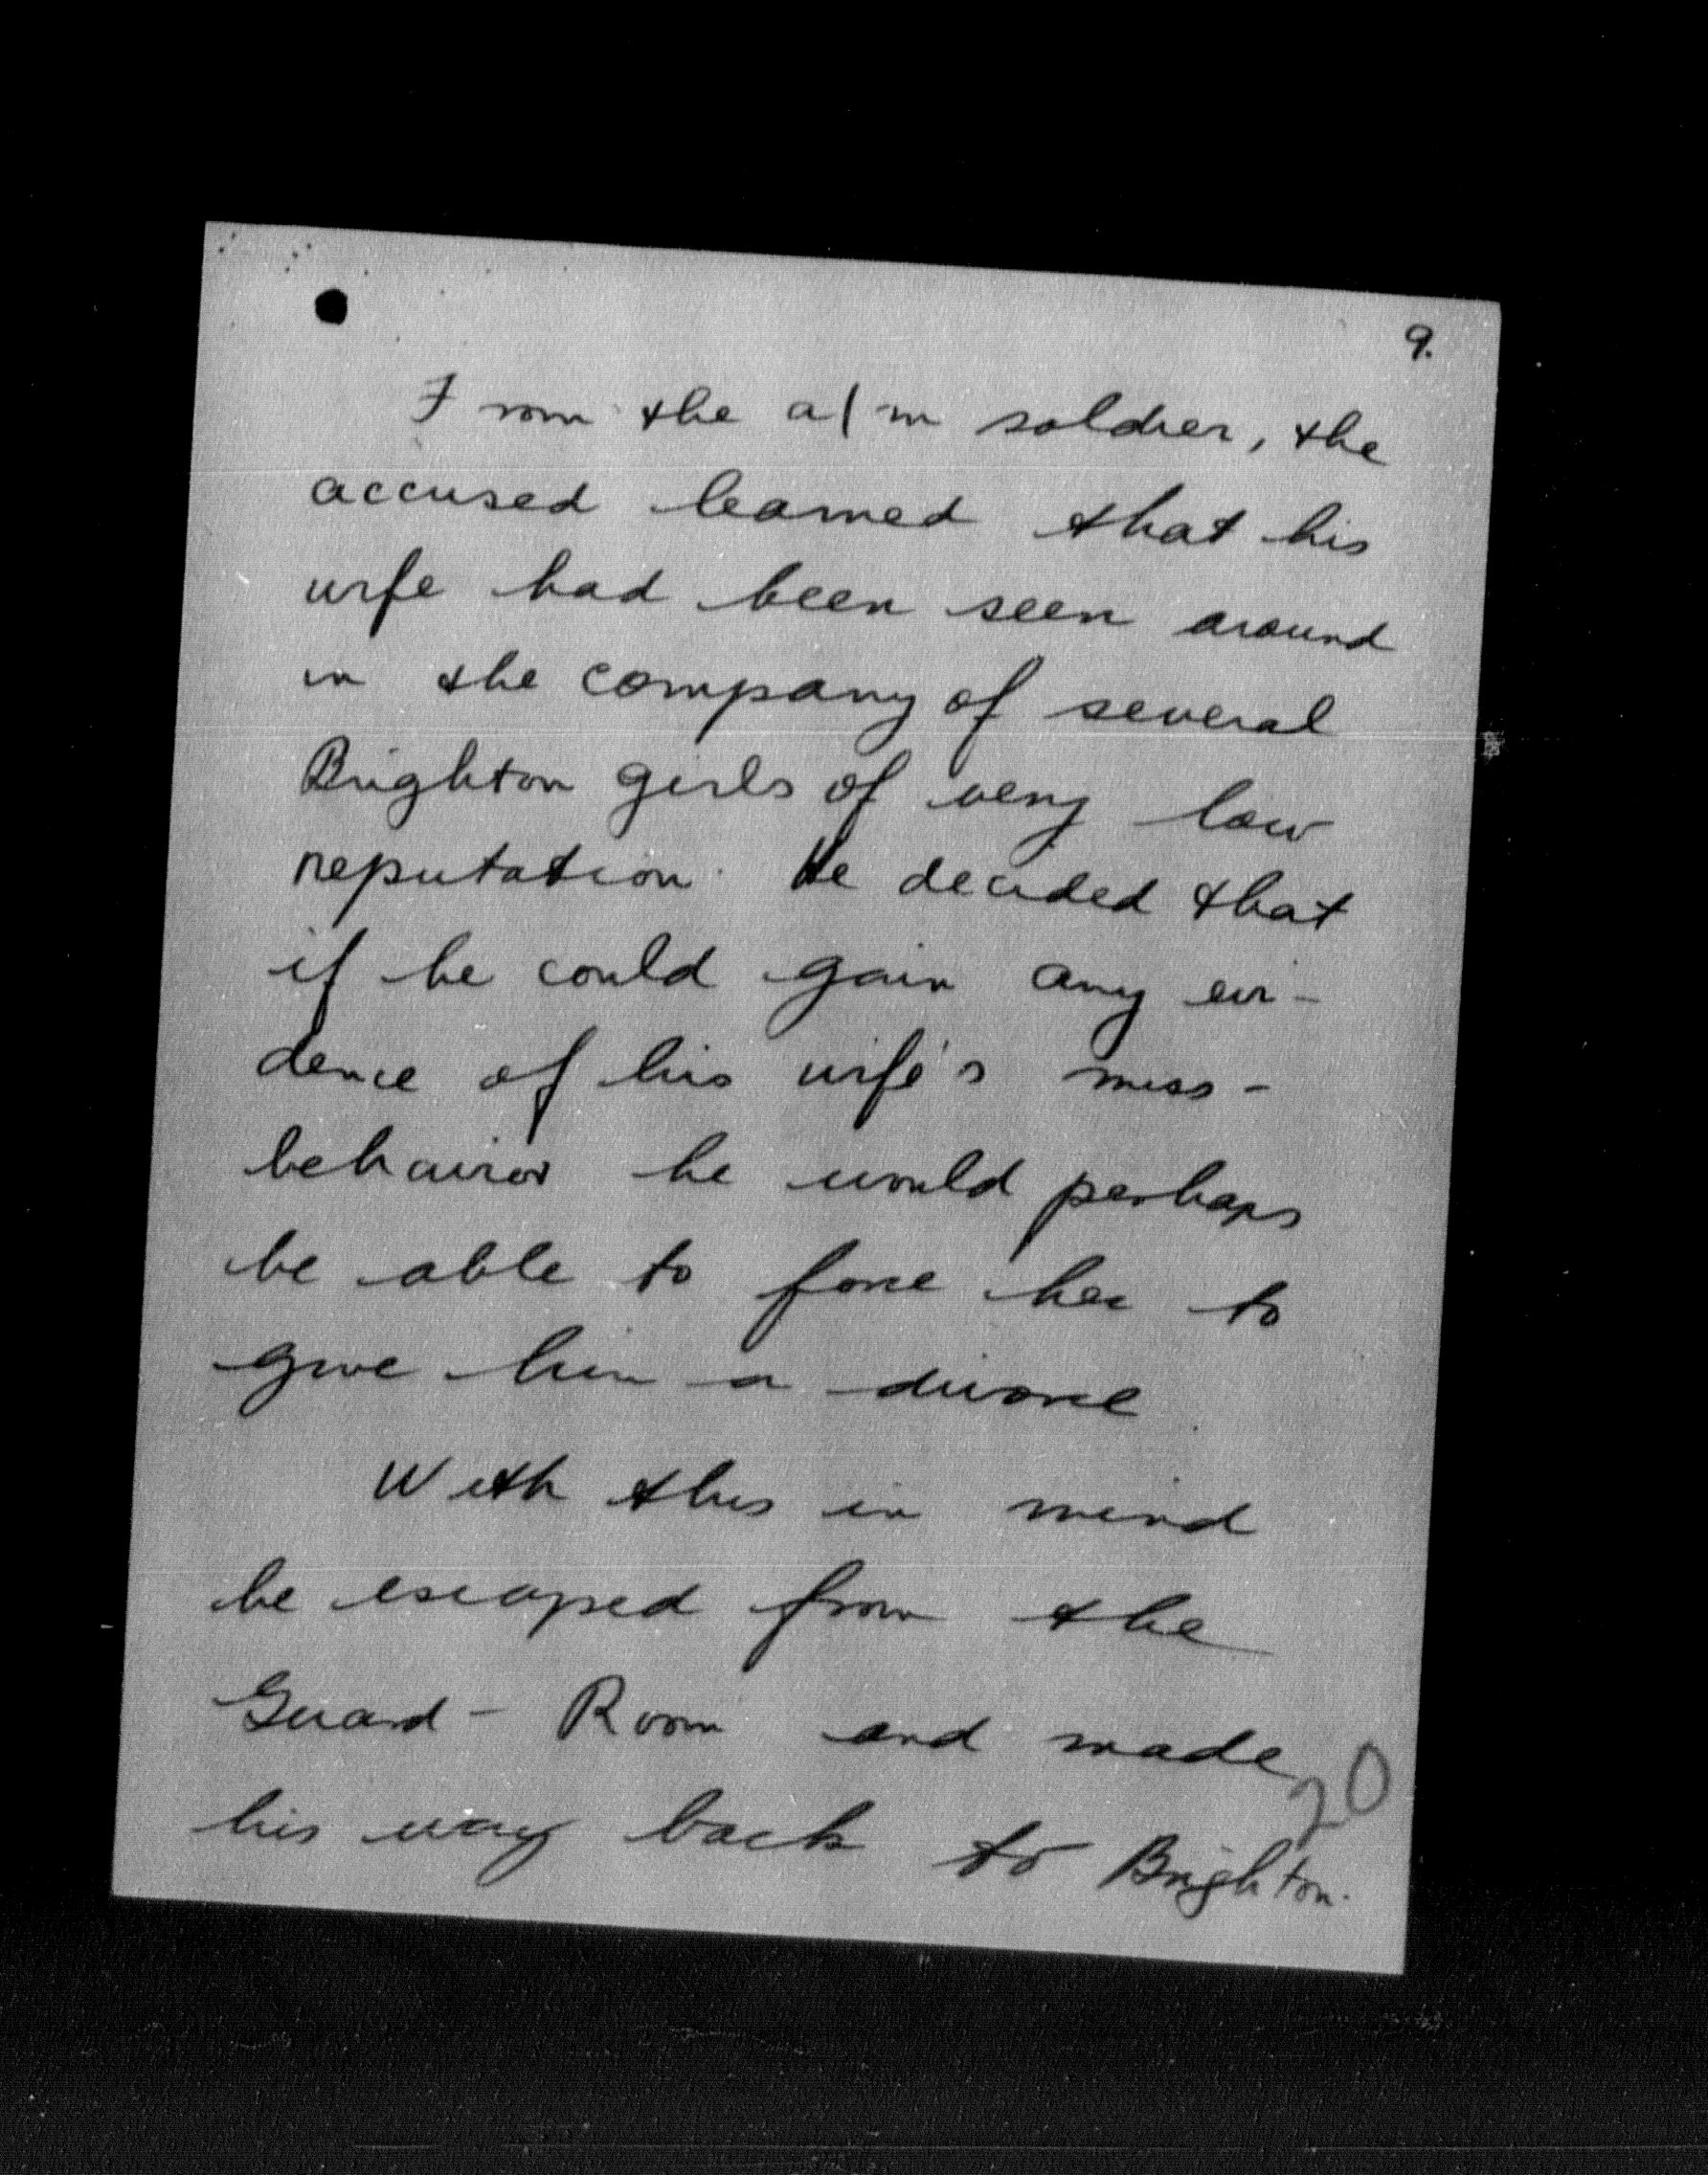 9.
From the a/m soldier, the
accused learned that his
wife had been seen around
in the company of several
Brighton girls of very low
reputation. He decided that
if he could gain any evi-
dence of his wife's miss-
behavior he would perhaps
be able to force her to
give him a divorce.
With this in mind
he escaped from the
Guard-Room and made
20
his way back to Brighton.